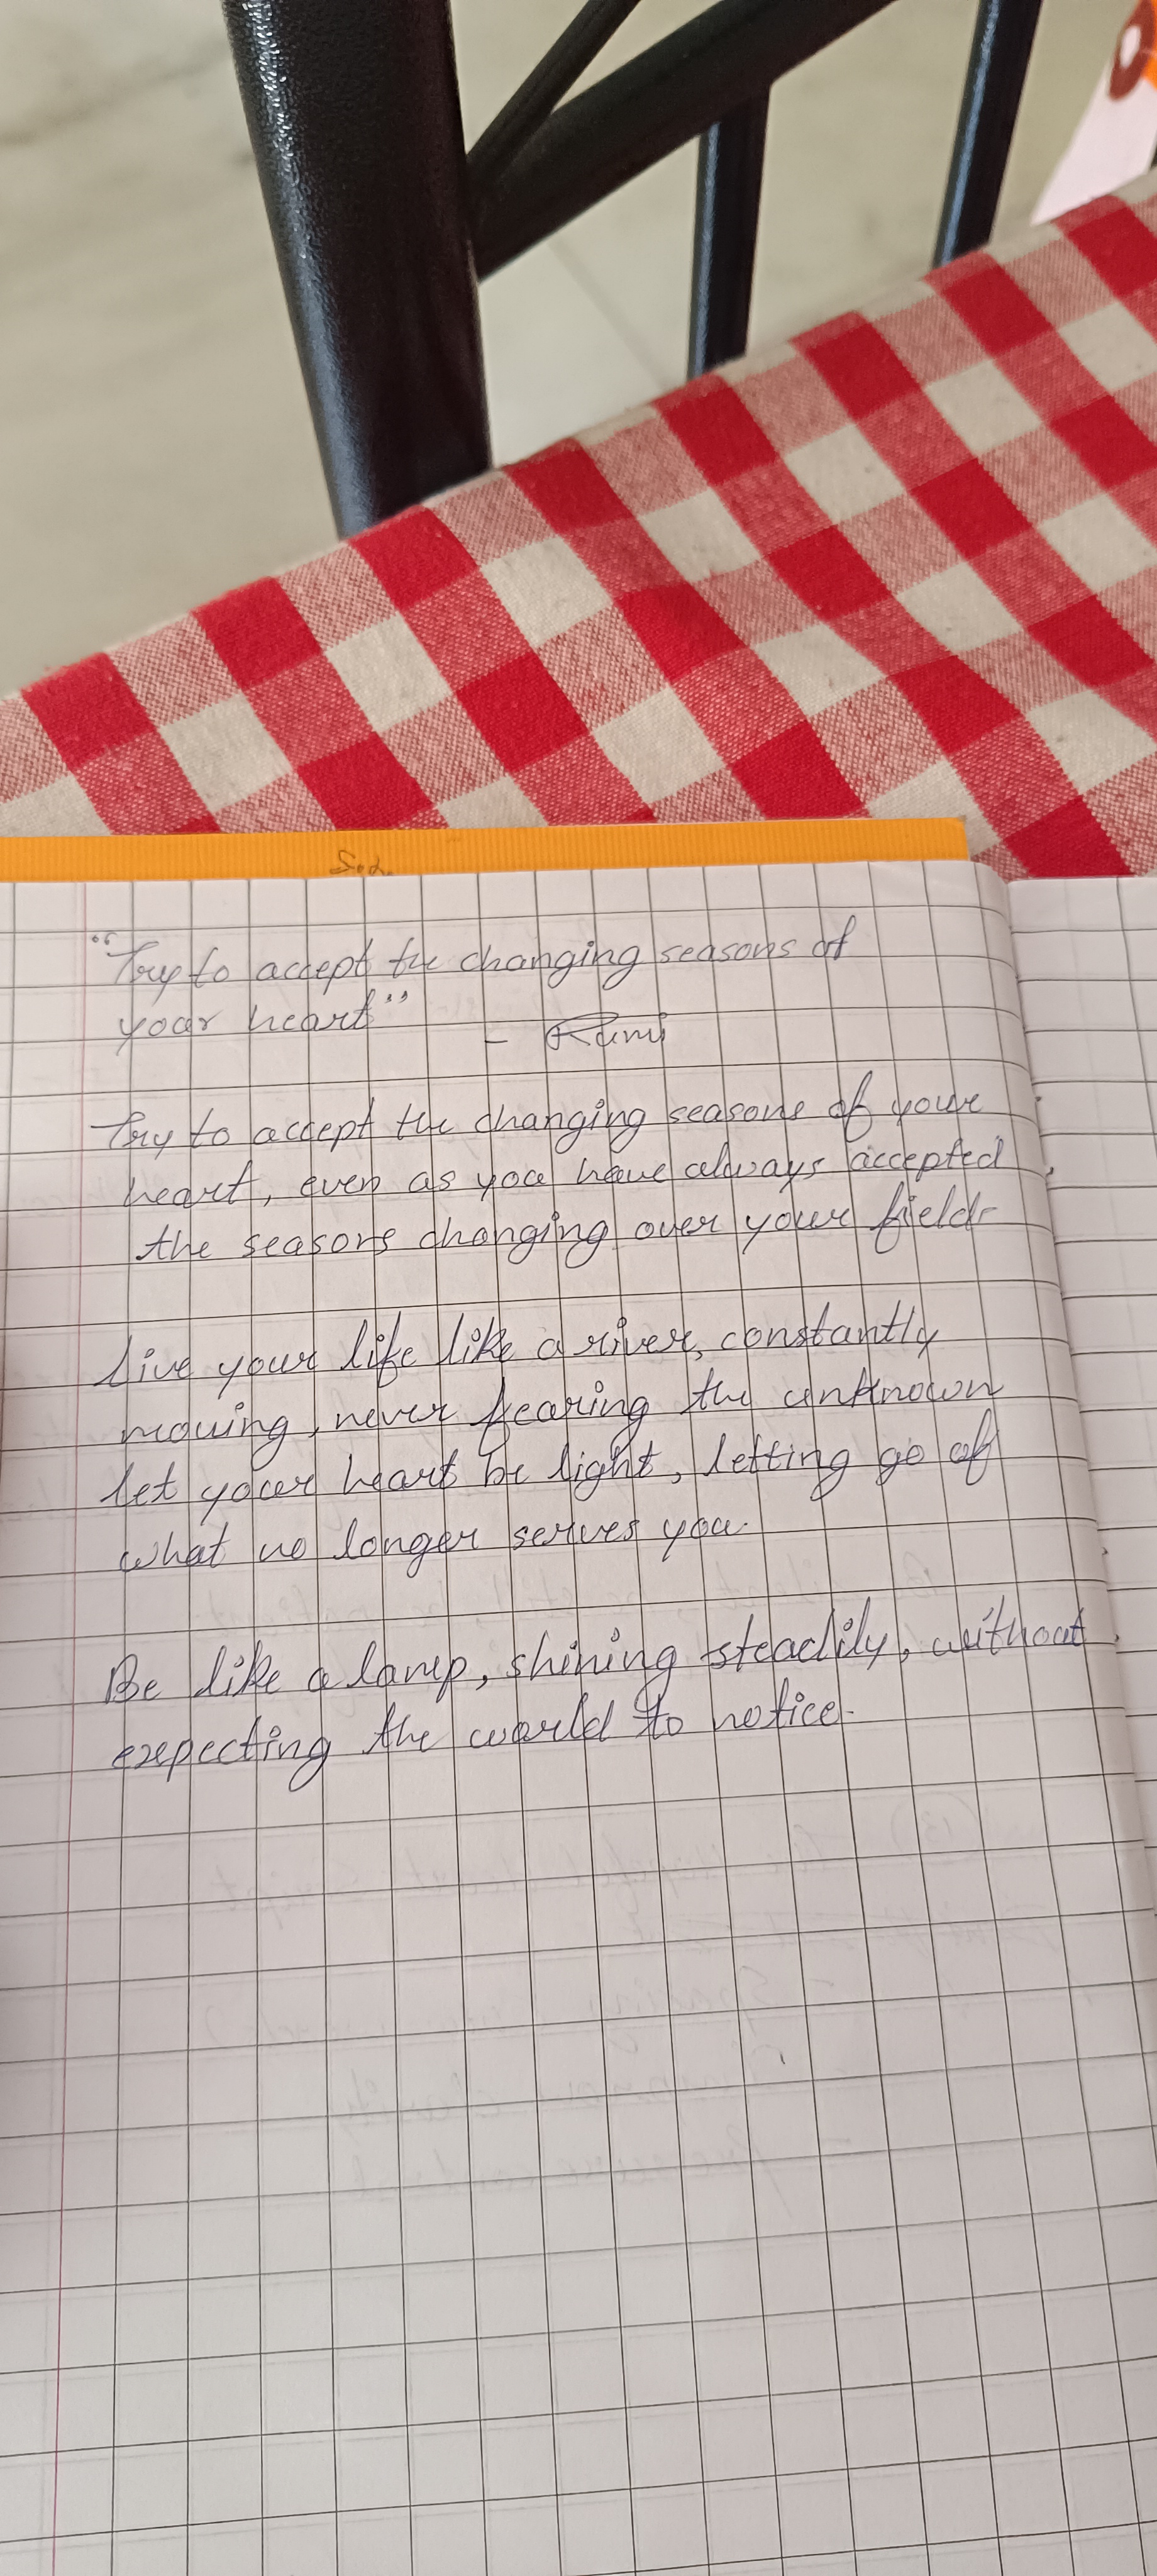 "Try to accept the changing seasons of
your heart"
- Rumi
Try to accept the changing seasons of your
heart, even as you have always accepted
the seasons changing over your field
Live your life like a river, constantly
moving, never fearing the unknown
let your heart be light, letting go of
what no longer serves you.
Be like a lamp, shining steadily, without
expecting the world to notice.